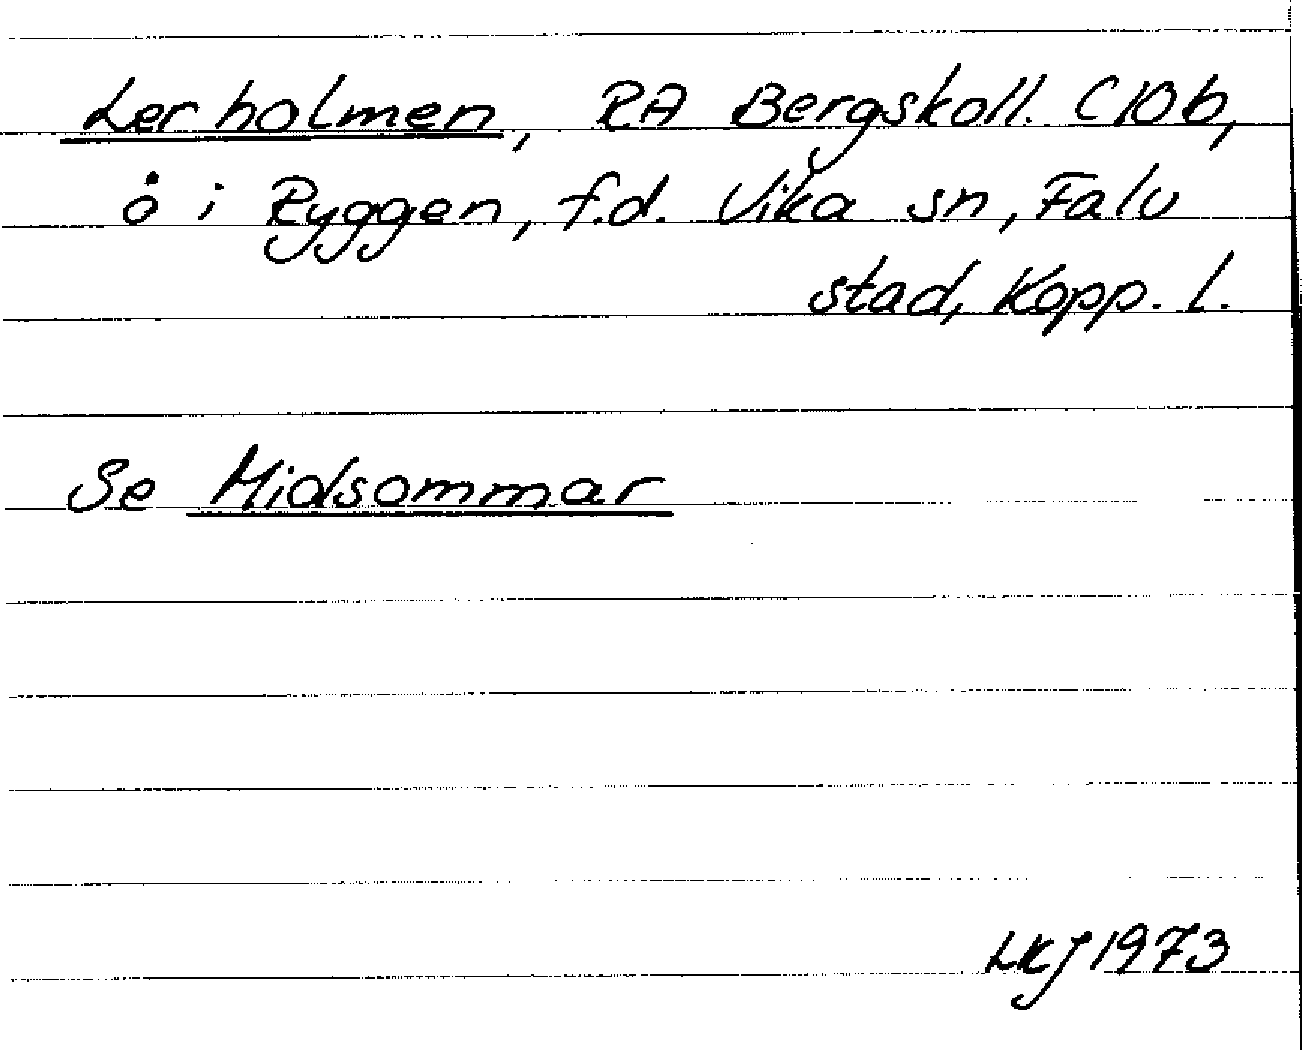 Lerholmen, RA Bergskoll. C10b,
ö i Ryggen, f.d. Vika sn, Falu
stad, Kopp. l.
Se Midsommar
LKJ 1973